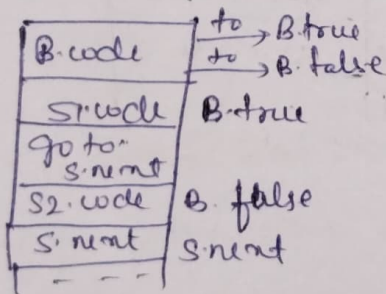 B.code to → B.true
to → B.false
S1.code B.true
go to
S.next
S2.code B.false
S.next S.next
- - -